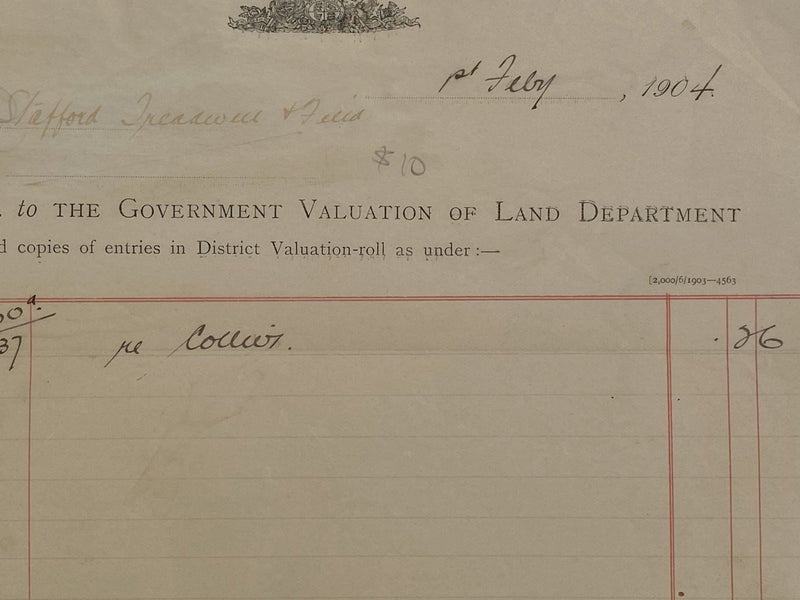 1st Feby, 1904.
Stafford Treadwell & Field
$10
. to THE GOVERNMENT VALUATION OF LAND DEPARTMENT
d copies of entries in District Valuation-roll as under :—
[2,000/6/1903—4563
0a.
37 re Collins. . 26